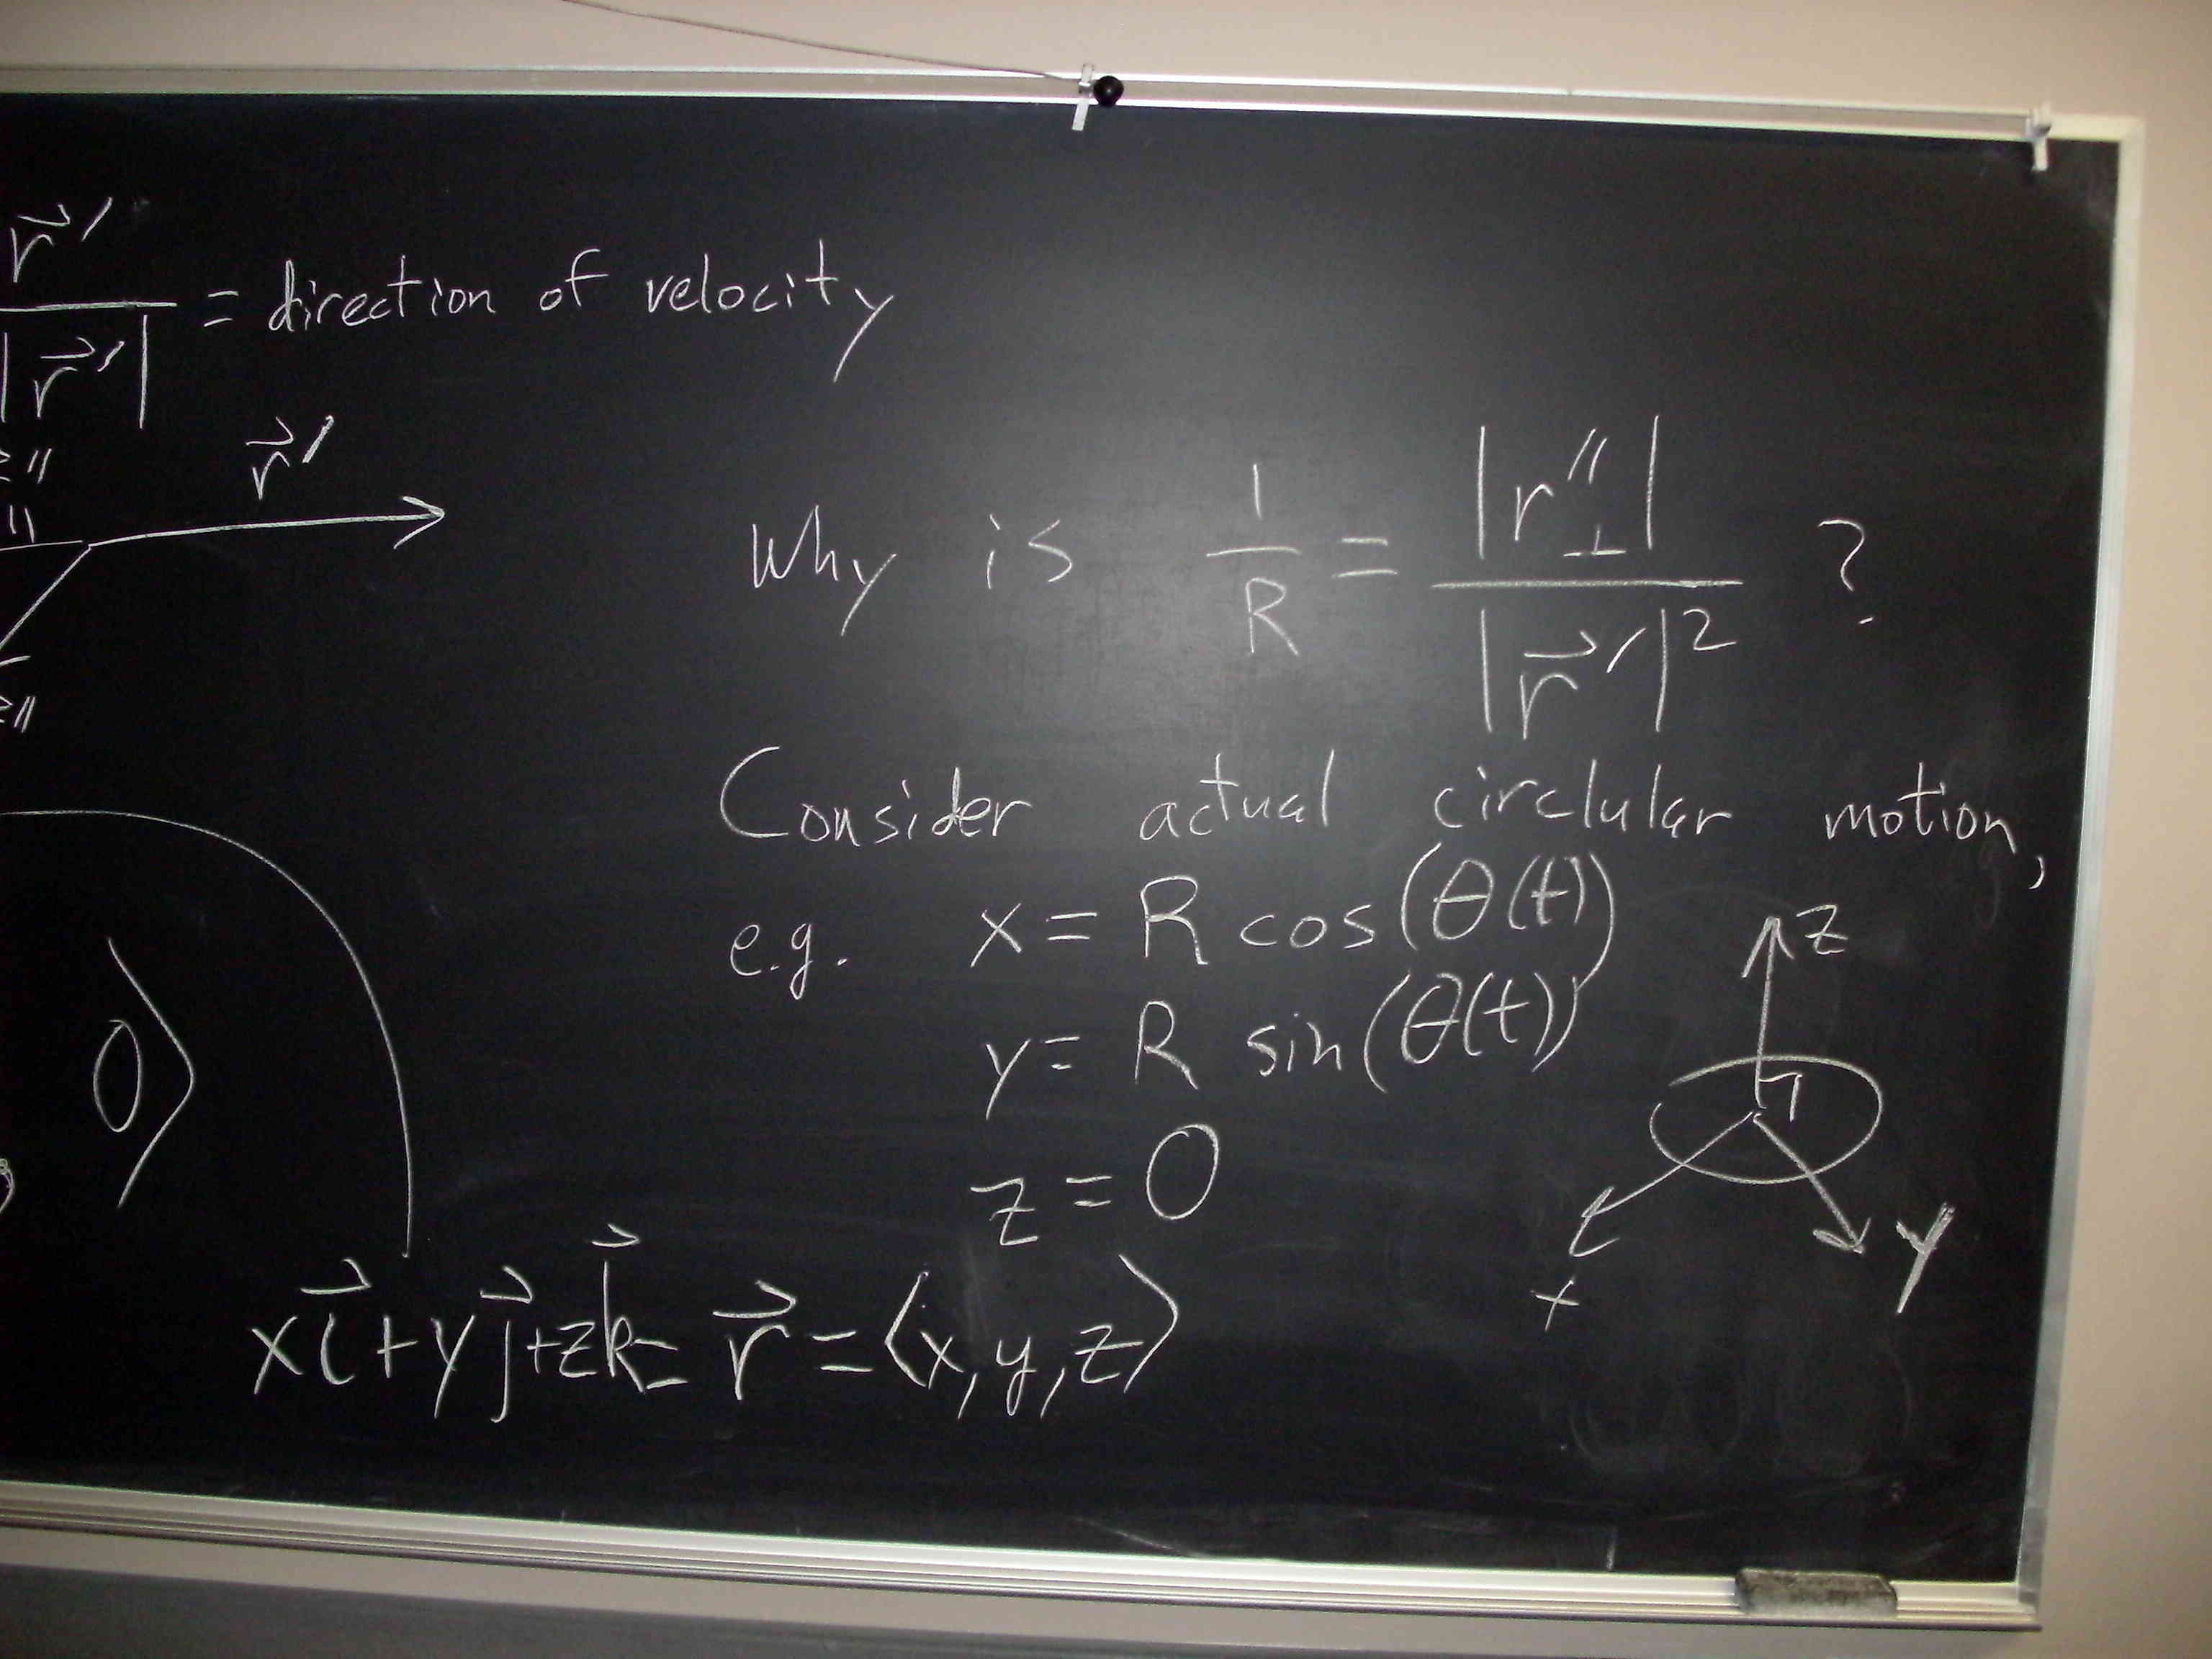 r⃗′
─── = direction of velocity
|r⃗′|
r⃗′
Why is 1/R = |r″⊥| / |r⃗′|² ?
Consider actual circlular motion,
e.g. x = R cos(θ(t))
y = R sin(θ(t))
z = 0
z
x
y
0⟩
xi⃗+yj⃗+zk⃗ = r⃗ = ⟨x,y,z⟩